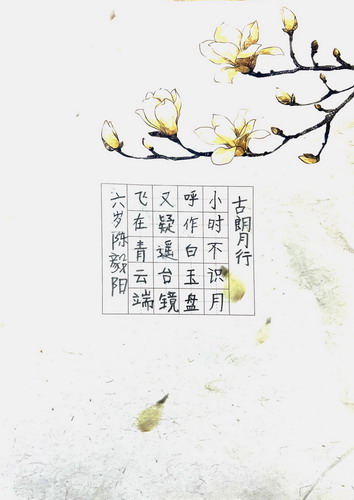 古朗月行
小时不识月
呼作白玉盘
又疑遥台镜
飞在青云端
六岁陈毅阳